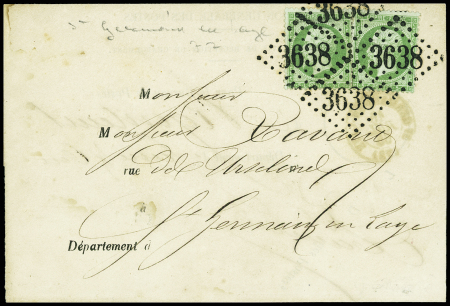 3638
3638 3638
3638
St Germain en Laye
72
Monsieur
Monsieur Ravard
rue Des Ursulines
à St Germain en Laye
Département d